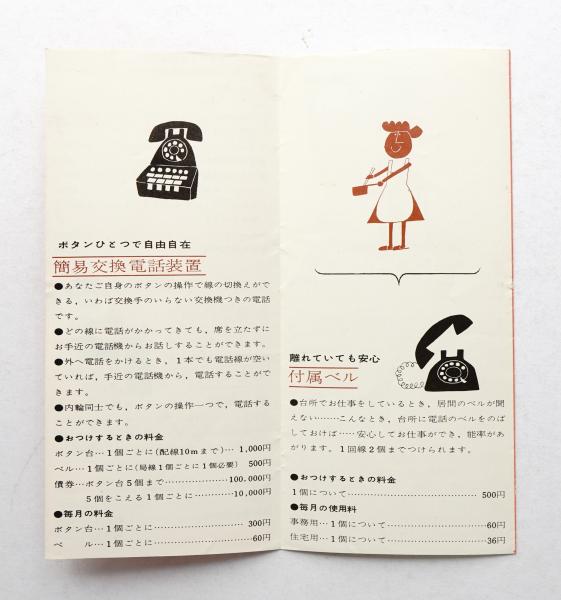 ボタンひとつで自由自在
簡易交換電話装置
●あなたご自身のボタンの操作で線の切換えがで
きる，いわば交換手のいらない交換機つきの電話
です。
●どの線に電話がかかってきても，席を立たずに
お手近の電話機からお話しすることができます。
●外へ電話をかけるとき，1本でも電話線が空い
ていれば，手近の電話機から，電話することがで
きます。
●内輪同士でも，ボタンの操作一つで，電話する
ことができます。
●おつけするときの料金
ボタン台…1個ごとに(配線10mまで)… 1,000円
ベル…1個ごとに(局線1個ごとに1個必要) 500円
債券…ボタン台5個まで……………………100,000円
5個をこえる1個ごとに…………10,000円
●毎月の料金
ボタン台…1個ごとに……………………………300円
ベ　ル…1個ごとに……………………………60円
離れていても安心
付属ベル
●台所でお仕事をしているとき，居間のベルが聞
えない……こんなとき，台所に電話のベルをのば
しておけば……安心してお仕事ができ，能率があ
がります。1回線2個までつけられます。
●おつけするときの料金
1個について……………………………………500円
●毎月の使用料
事務用…1個について…………………………60円
住宅用…1個について…………………………36円